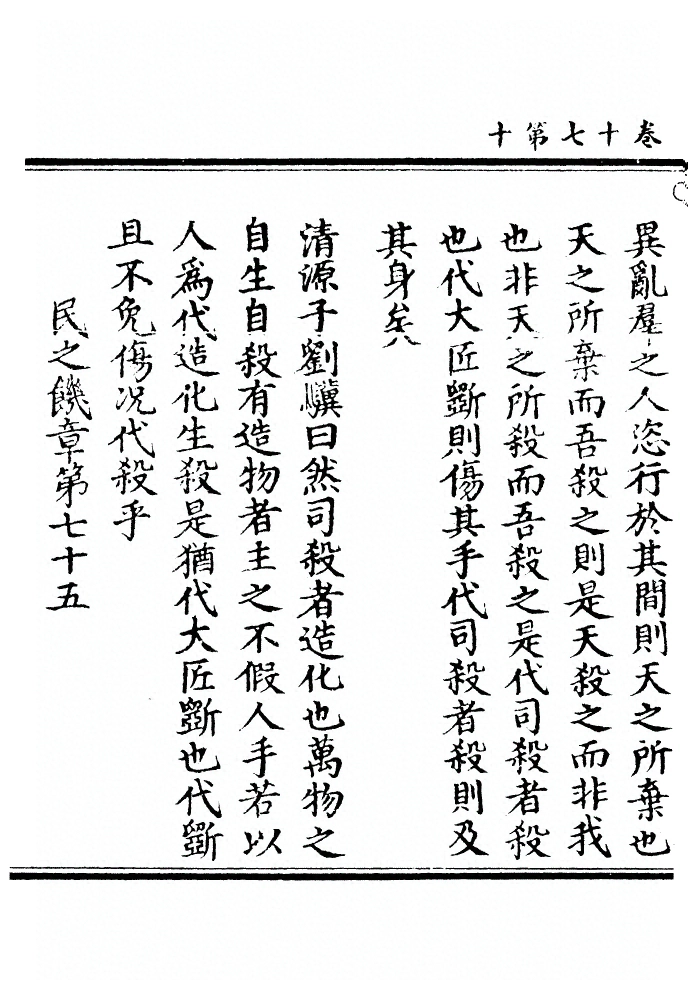 卷十七第十
異亂羣之人恣行於其間則天之所棄也
天之所棄而吾殺之則是天殺之而非我
也非天之所殺而吾殺之是代司殺者殺
也代大匠斲則傷其手代司殺者殺則及
其身矣八
清源子劉驥曰然司殺者造化也萬物之
自生自殺有造物者主之不假人手若以
人爲代造化生殺是猶代大匠斲也代斲
且不免傷况代殺乎
民之饑章第七十五